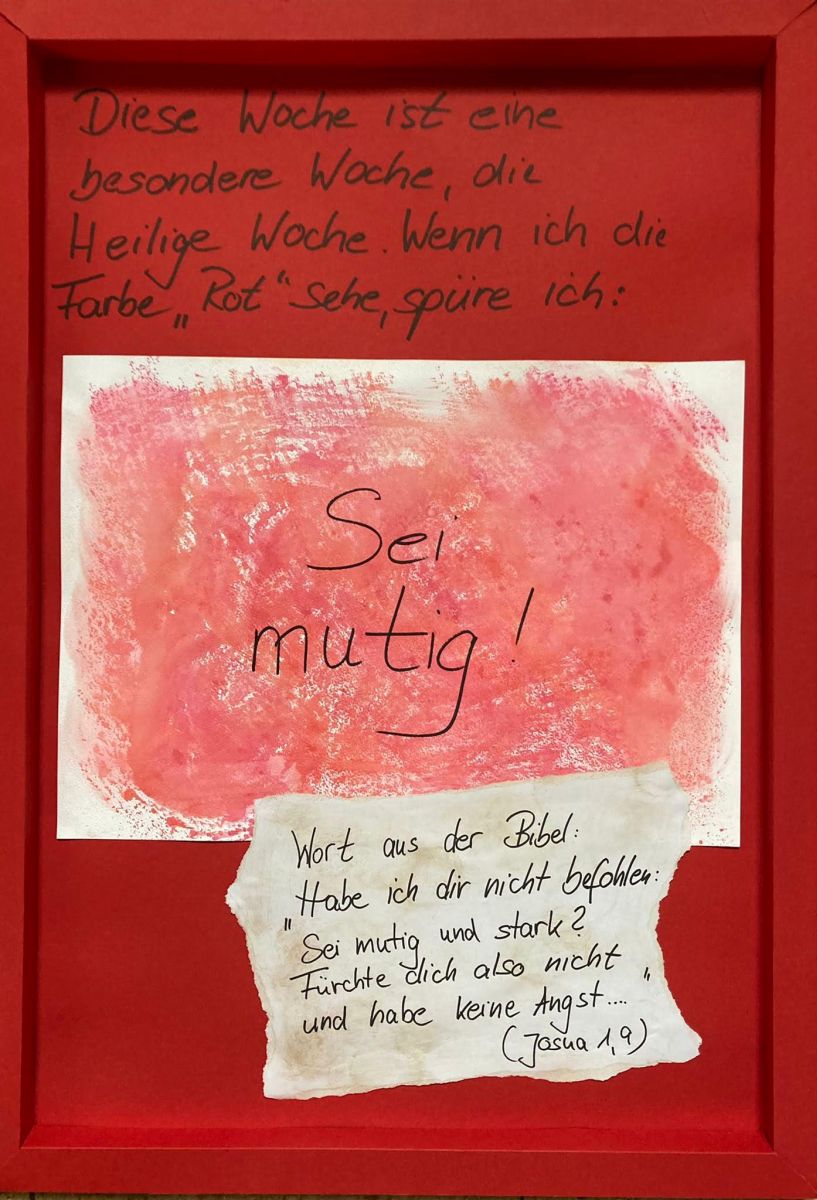 Diese Woche ist eine
besondere Woche, die
Heilige Woche. Wenn ich die
Farbe „Rot“ sehe, spüre ich:
Sei
mutig!
Wort aus der Bibel:
„Habe ich dir nicht befohlen:
Sei mutig und stark?
Fürchte dich also nicht
und habe keine Angst....“
(Josua 1,9)